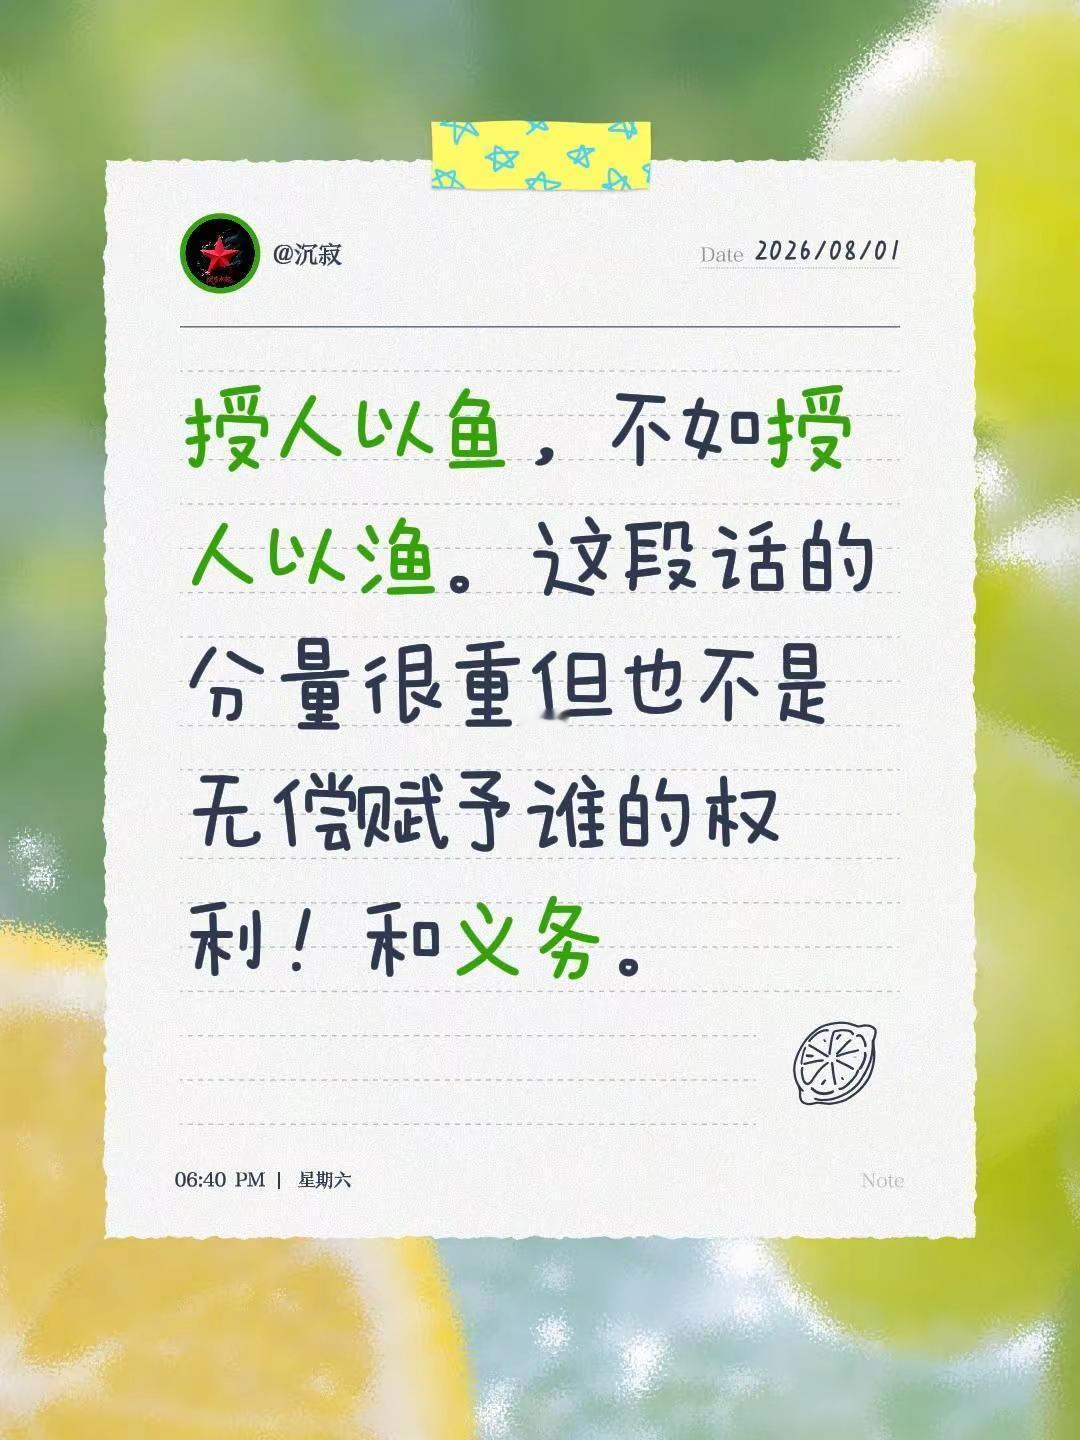 @沉寂
Date 2026/08/01
授人以鱼，不如授
人以渔。这段话的
分量很重但也不是
无偿赋予谁的权
利！和义务。
06:40 PM | 星期六
Note